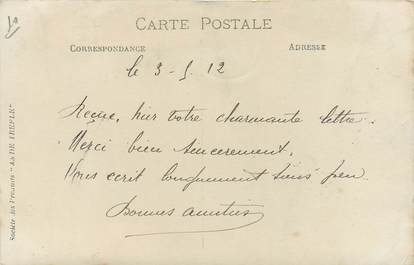 CARTE POSTALE
CORRESPONDANCE
ADRESSE
le 3-5 12
Reçue, hier votre charmante lettre.
Merci bien sincerement.
Vous ecrit longuement sous peu
Bonnes amities
Société des Produits "As DE TREFLE"